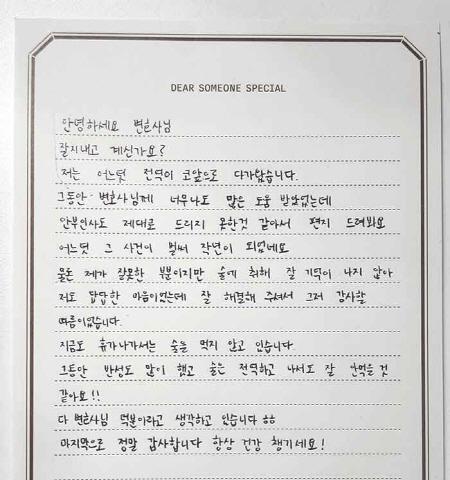 DEAR SOMEONE SPECIAL
안녕하세요 변호사님
잘지내고 계신가요?
저는 어느덧 전역이 코앞으로 다가왔습니다.
그동안 변호사님께 너무나도 많은 도움 받았었는데
안부인사도 제대로 드리지 못한것 같아서 편지 드려봐요
어느덧 그 사건이 벌써 작년이 되었네요
물론 제가 잘못한 부분이지만 술에 취해 잘 기억이 나지 않아
저도 답답한 마음이었는데 잘 해결해 주셔서 그저 감사할
따름이었습니다.
지금도 휴가나가서는 술을 먹지 않고 있습니다.
그동안 반성도 많이 했고 술은 전역하고 나서도 잘 안먹을 것
같아요!!
다 변호사님 덕분이라고 생각하고 있습니다 ㅎㅎ
마지막으로 정말 감사합니다 항상 건강 챙기세요!